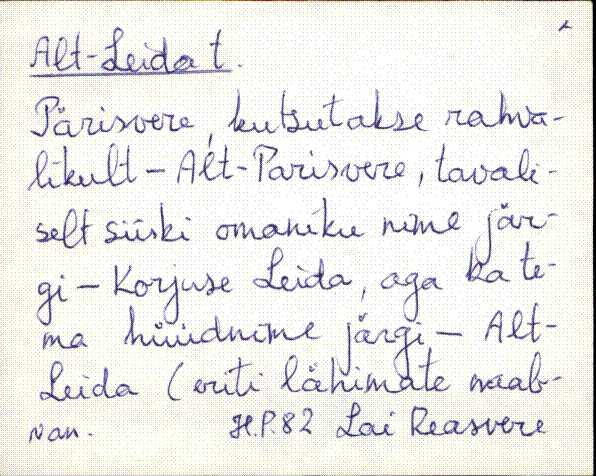 Alt-Leida t.
Pärisvere, kutsutakse rahva-
likult - Alt-Parisvere, tavali-
selt siiski omaniku nime jär-
gi - Korjuse Leida, aga ka te-
ma hüüdnime järgi - Alt-
Leida (eriti lähimate naab-
H.P.82 Lai Reasvere